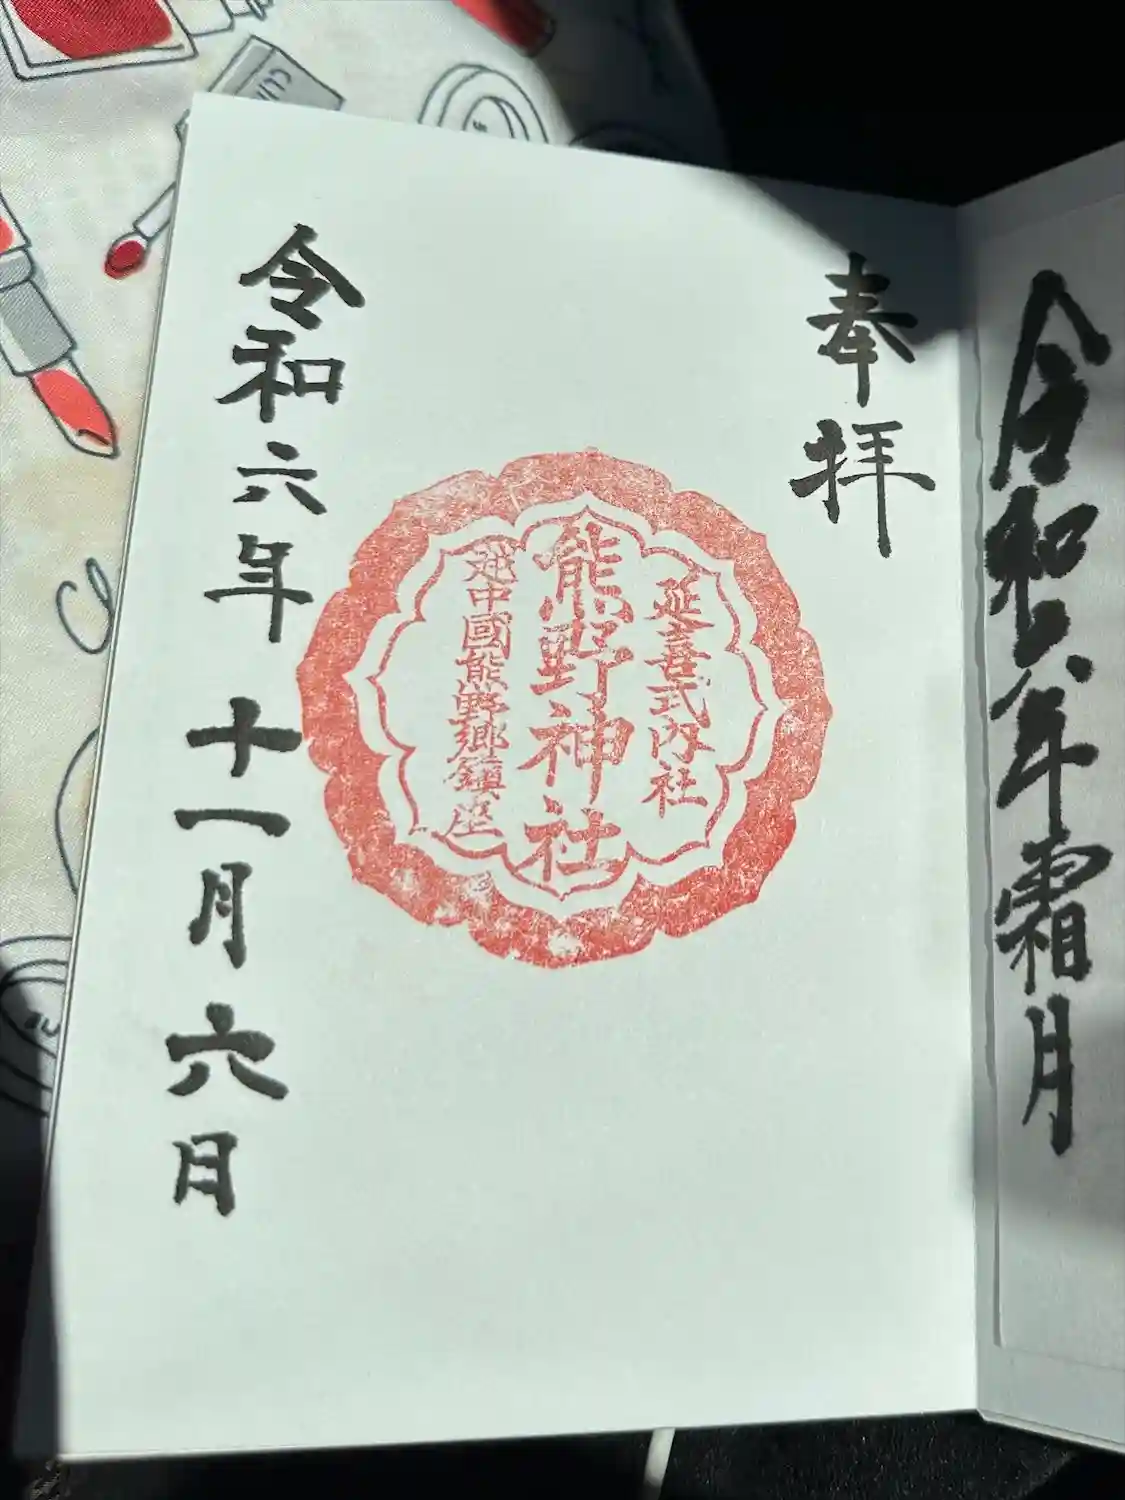 令和六年霜月
奉拝
延喜式内社
熊野神社
越中國熊野郷鎮座
令和六年十一月六日